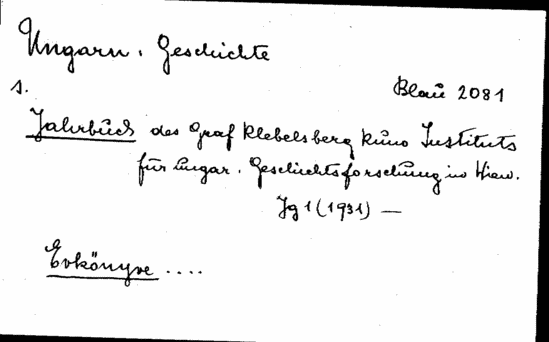 Ungarn. Geschichte
s.
Blau 2081
Jahrbuch des Graf Klebelsberg Kuno Instituts
für ungar. Geschichtsforschung in Wien.
Jg 1 (1931) —
Évkönyve ....